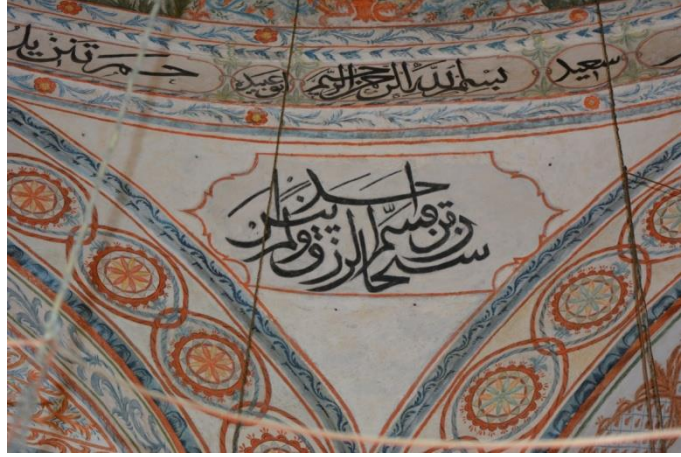 سعيد
بسم الله الرحمن الرحيم
حم تنزيل
سبحان من قسم الرزق ولم ينس احد